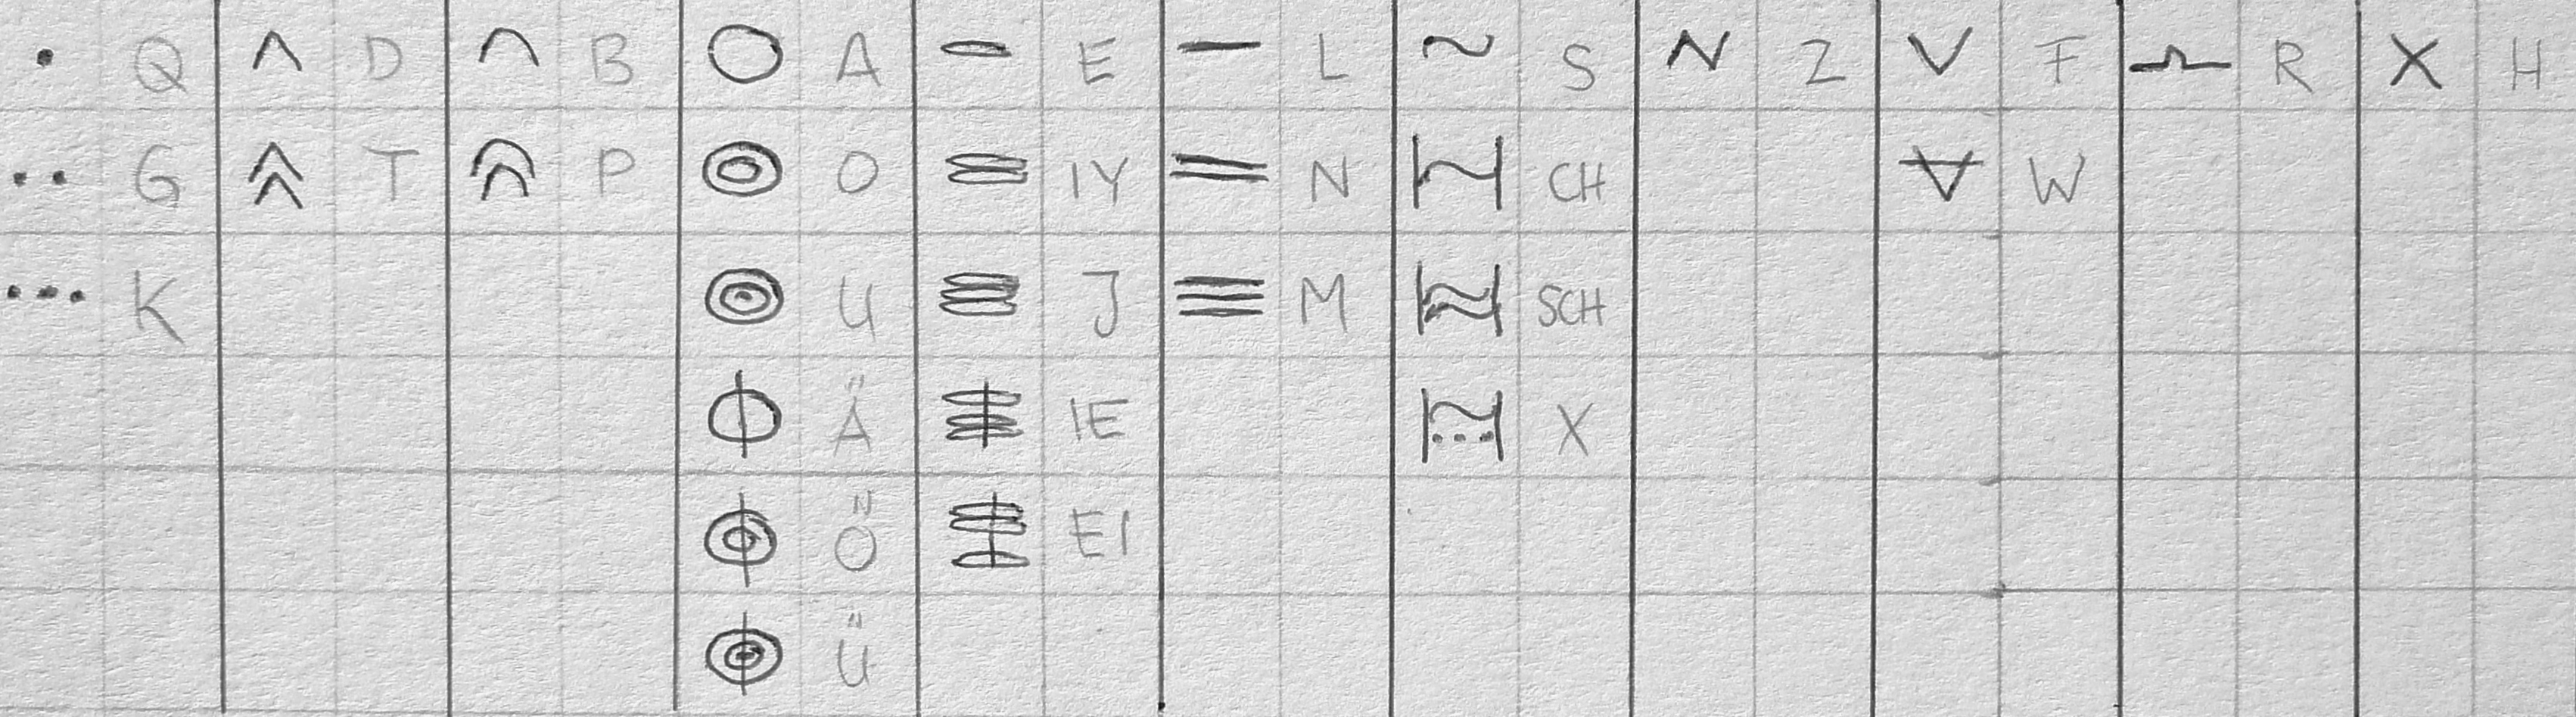 Q D B A E L S Z F R H
G T P O IY N CH W
K U J M SCH
Ä IE X
Ö EI
Ü